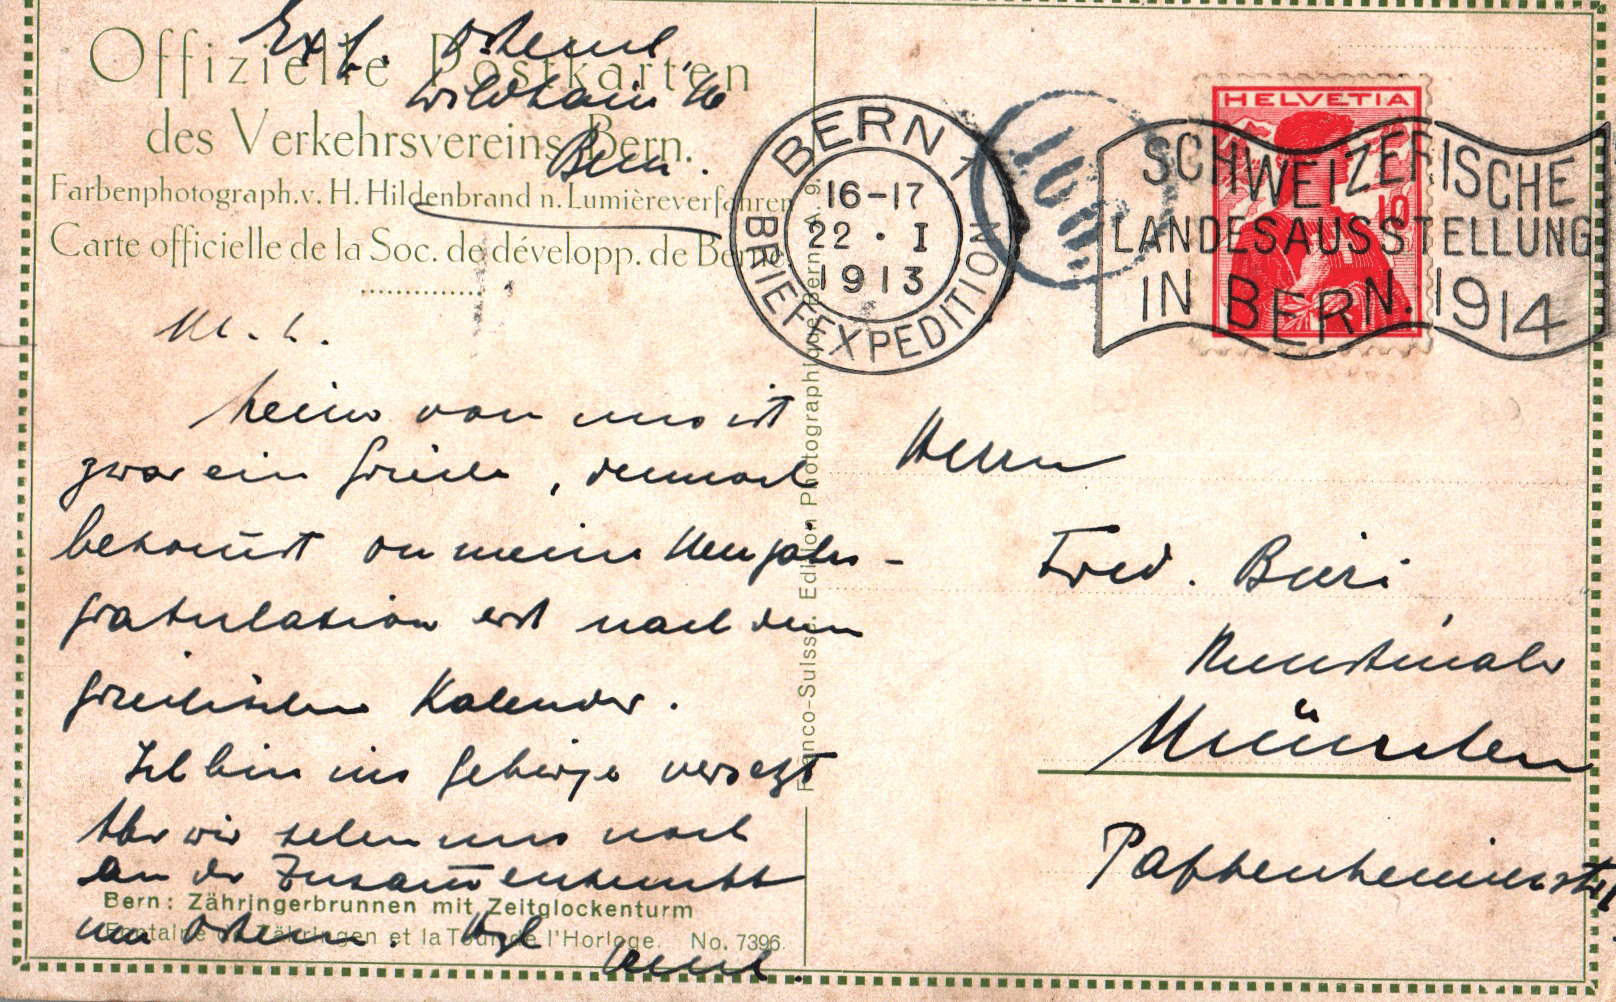 Exp.
Wildhain 16
Bern.
Offizielle Postkarten
des Verkehrsvereins Bern.
Farbenphotograph.v. H. Hildenbrand n. Lumièreverfahren
Carte officielle de la Soc. de développ. de Berne.
M. L.
Keiner von uns ist
zwar ein Grieche, dennoch
bekom̄st du meine Neujahrs-
gratulation erst nach dem
griechischen Kalender.
Ich bin ins Gebirge versetzt
Aber wir sehen uns noch
an der Zusam̄enkunft
um Ostern. Hzl
Bern: Zähringerbrunnen mit Zeitglockenturm
Fontaine de Zähringen et la Tour de l'Horloge. No. 7396.
Franco-Suisse. Edition Photographique, Berne. A. 9.
BERN 1
16-17
22 · I
1913
BRIEFEXPEDITION
HELVETIA
10
SCHWEIZERISCHE
LANDESAUSSTELLUNG
IN BERN. 1914
Herrn
Fred. Buri,
Kunstmaler
München
Pappenheimerstr